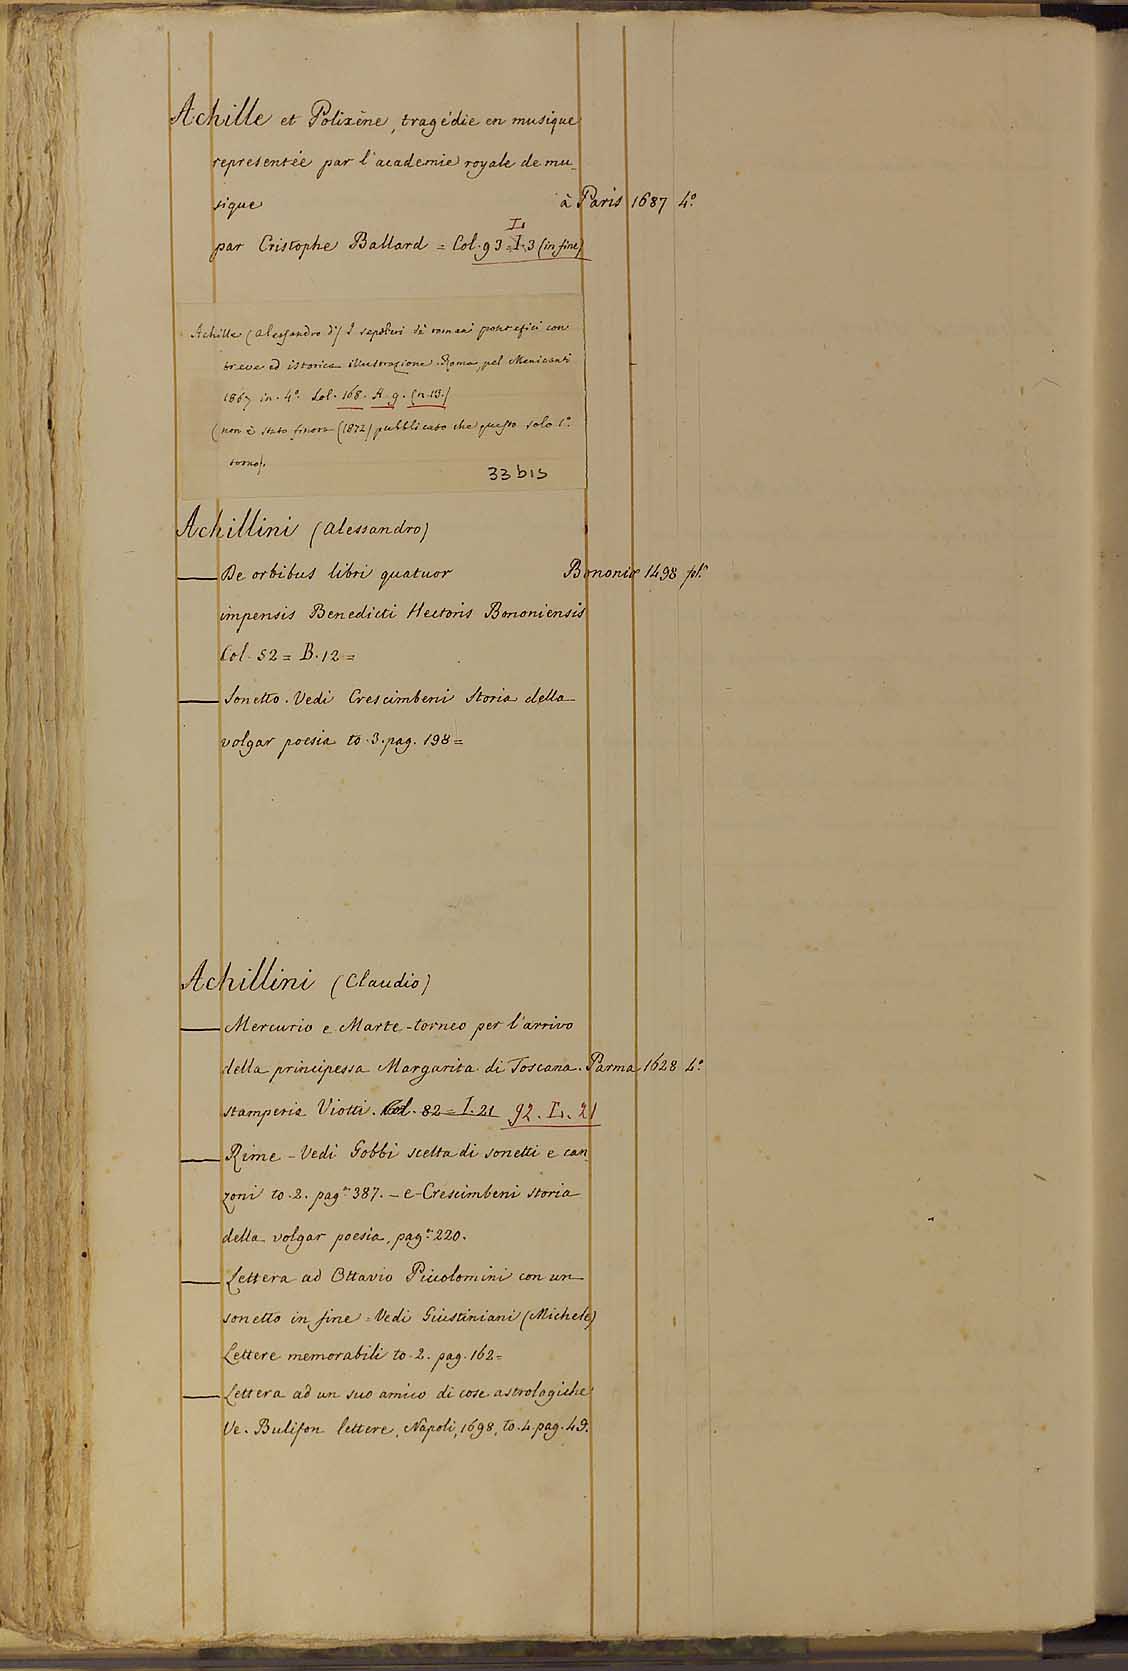 Achille et Polixène, tragédie en musique
representée par l'academie royale de mu-
sique à Paris 1687 4.º
L
par Cristophe Ballard = Col. 93 = I.3 (in fine)
Achille (Alessandro d') I sepolcri dè romani pontefici con
breve ed istorica illustrazione. Roma, pel Menicanti
1867 in. 4.º Col. 168. A. 9. (n. 13.)
(non è stato finora (1872) pubblicato che questo solo 1.º
tomo).
33 bis
Achillini (Alessandro)
— De orbibus libri quatuor Bononiæ 1498
impensis Benedicti Hectoris Bononiensis
Col. 52 = B. 12 =
— Sonetto. Vedi Crescimbeni Storia della
volgar poesia to. 3. pag. 198 =
Achillini (Claudio)
— Mercurio e Marte - torneo per l'arrivo
della principessa Margarita di Toscana. Parma 1628 4.º
stamperia Viotti. Col. 82 = I. 21 92. L. 21
— Rime - Vedi Gobbi scelta di sonetti e can-
zoni to. 2. pag.ª 387. - e Crescimbeni storia
della volgar poesia, pag.ª 220.
— Lettera ad Ottavio Piccolomini con un
sonetto in fine = Vedi Giustiniani (Michele)
Lettere memorabili to. 2. pag. 162 =
— Lettera ad un suo amico di cose astrologiche
Ve. Bulifon lettere, Napoli, 1698, to. 4. pag. 49.